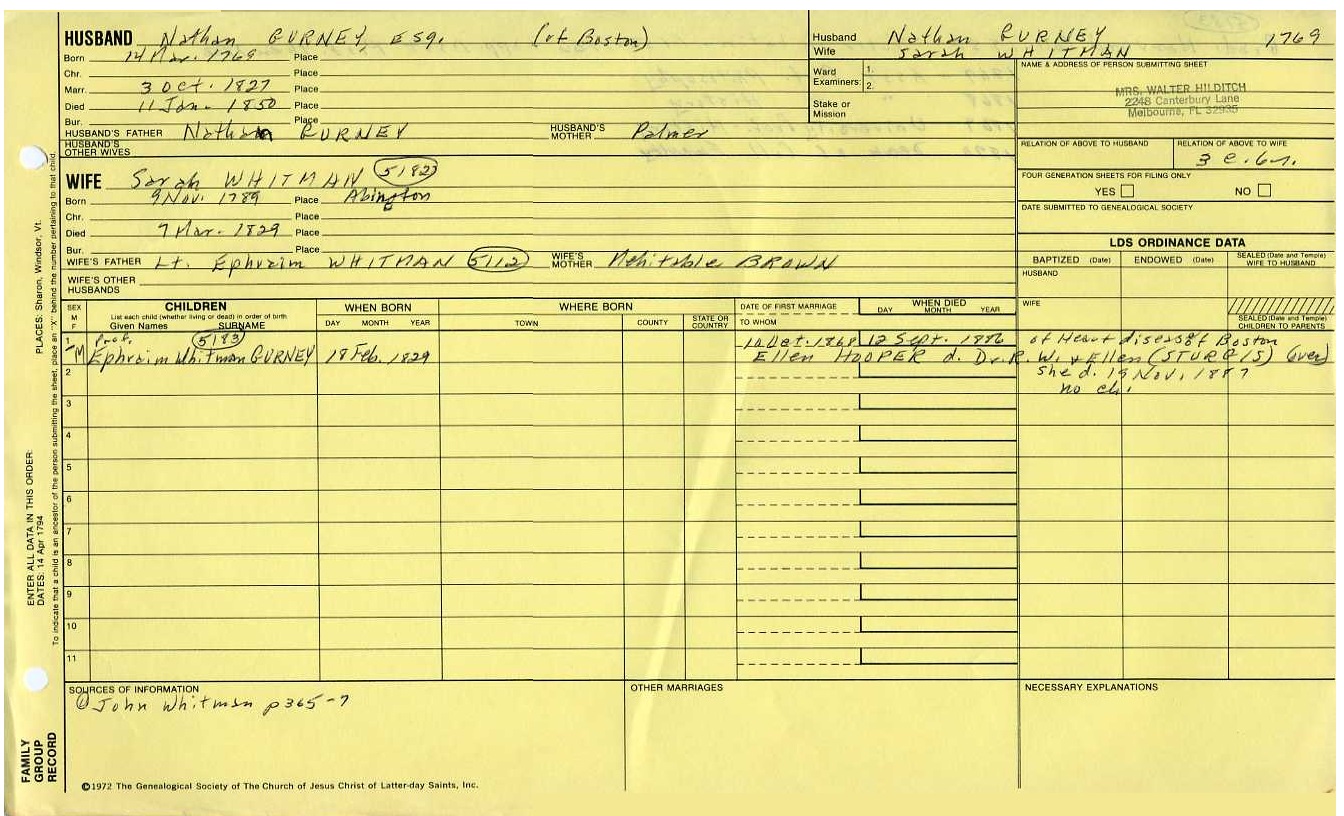 HUSBAND Nathan GURNEY, ESQ. (of Boston)
Born 14 Mar. 1769 Place
Chr. Place
Marr. 3 Oct. 1827 Place
Died 11 Jan. 1850 Place
Bur. Place
HUSBAND'S FATHER Nathan GURNEY HUSBAND'S MOTHER Palmer
HUSBAND'S OTHER WIVES
Husband Nathan GURNEY 1769
Wife Sarah WHITMAN
Ward Examiners: 1.
2.
Stake or Mission
NAME & ADDRESS OF PERSON SUBMITTING SHEET
MRS. WALTER HILDITCH
2248 Canterbury Lane
Melbourne, FL 32935
RELATION OF ABOVE TO HUSBAND RELATION OF ABOVE TO WIFE
3 c. 6r.
FOUR GENERATION SHEETS FOR FILING ONLY
YES NO
DATE SUBMITTED TO GENEALOGICAL SOCIETY
WIFE Sarah WHITMAN 5182
Born 9 Nov. 1789 Place Abington
Chr. Place
Died 7 Mar. 1829 Place
Bur. Place
WIFE'S FATHER Lt. Ephraim WHITMAN 5112 WIFE'S MOTHER Mehitable BROWN
WIFE'S OTHER HUSBANDS
LDS ORDINANCE DATA
BAPTIZED (Date) ENDOWED (Date) SEALED (Date and Temple) WIFE TO HUSBAND
HUSBAND
WIFE
SEALED (Date and Temple) CHILDREN TO PARENTS
SEX M F
CHILDREN
List each child (whether living or dead) in order of birth
Given Names SURNAME
WHEN BORN
DAY MONTH YEAR
WHERE BORN
TOWN COUNTY STATE OR COUNTRY
DATE OF FIRST MARRIAGE
TO WHOM
WHEN DIED
DAY MONTH YEAR
1 Prof. 5183 10 Oct. 1868 12 Sept. 1886 of Heart disease of Boston
M Ephraim Whitman GURNEY 18 Feb. 1829 Ellen HOOPER d. Dr. R. W. & Ellen (STURGIS) (over)
2 she d. 19 Nov. 1887
no ch.
3
4
5
6
7
8
9
10
11
SOURCES OF INFORMATION
① John Whitman p365-7
OTHER MARRIAGES
NECESSARY EXPLANATIONS
©1972 The Genealogical Society of The Church of Jesus Christ of Latter-day Saints, Inc.
FAMILY GROUP RECORD
ENTER ALL DATA IN THIS ORDER:
DATES: 14 Apr 1794
PLACES: Sharon, Windsor, Vt.
To indicate that a child is an ancestor of the person submitting the sheet, place an "X" behind the number pertaining to that child.